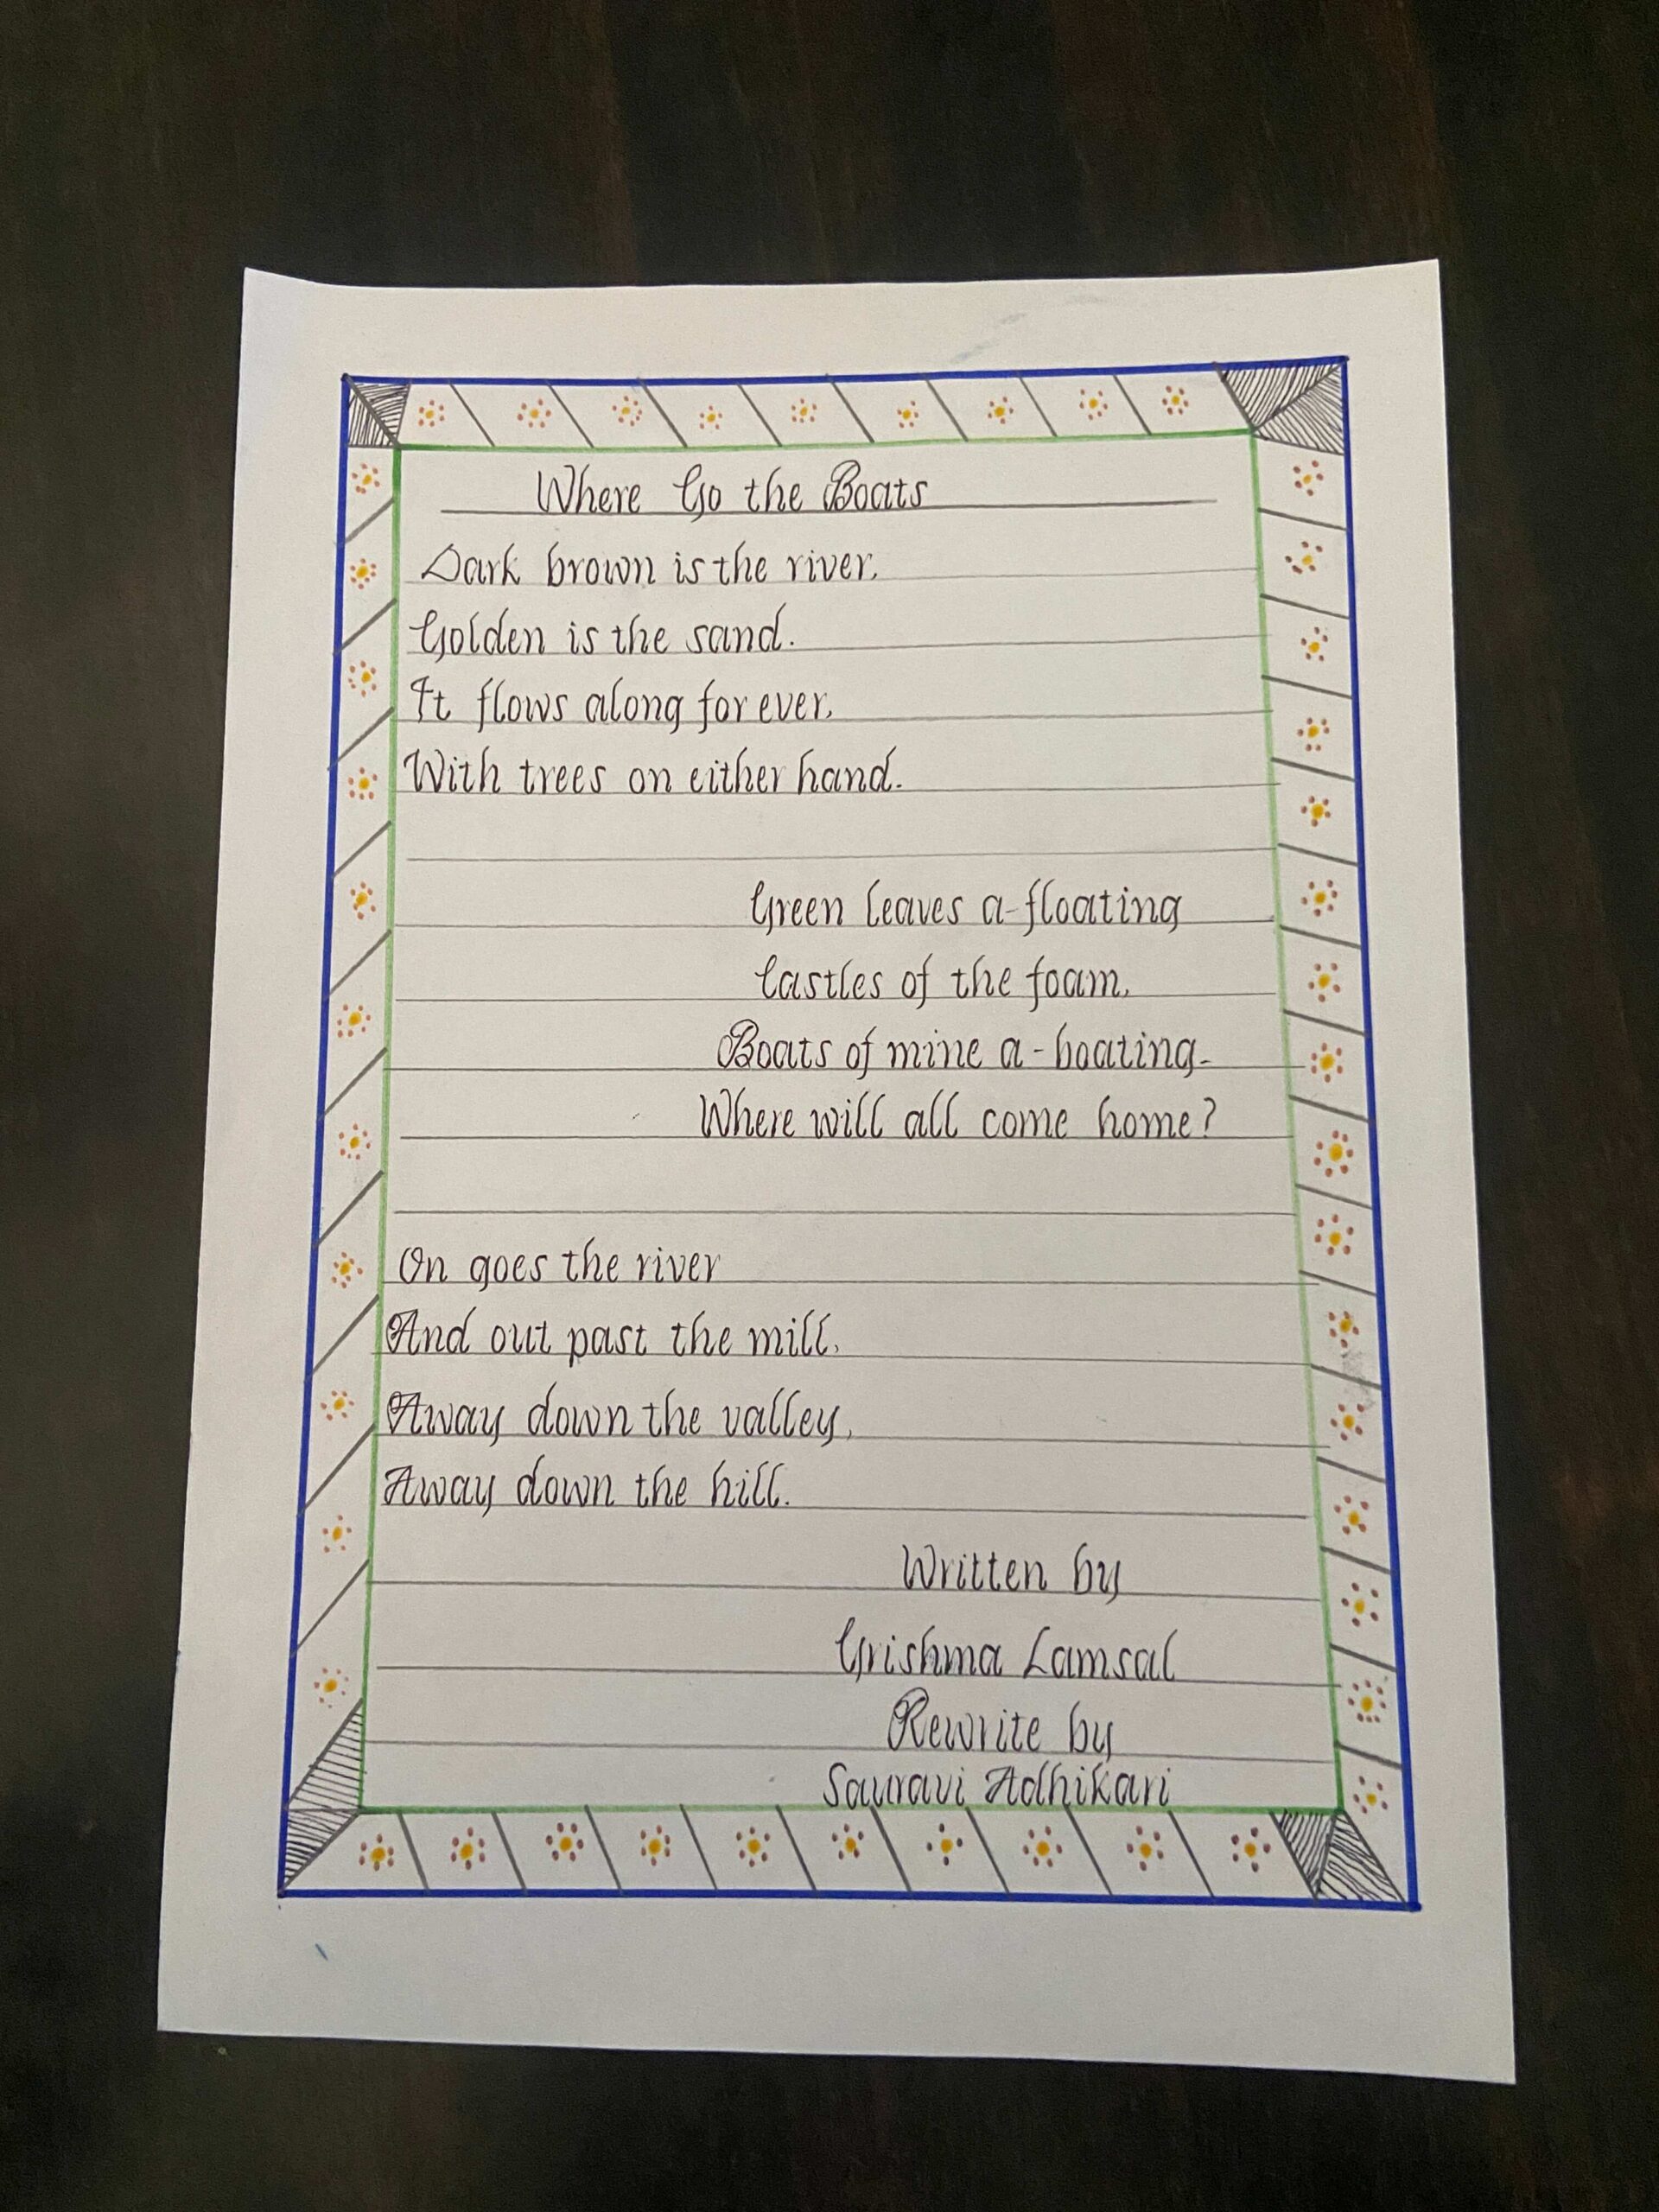 Where Go the Boats
Dark brown is the river,
Golden is the sand.
It flows along for ever,
With trees on either hand.
Green leaves a-floating
Castles of the foam,
Boats of mine a-boating-
Where will all come home?
On goes the river
And out past the mill,
Away down the valley,
Away down the hill.
Written by
Grishma Lamsal
Rewrite by
Sauravi Adhikari